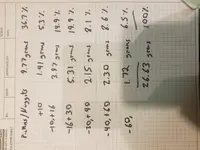 Nuggets 9.77 grams 36.7%
+10 1.41 grams 5.3%
-10,+16 3.97 grams 14.9%
-16+30 5.31 grams 19.9%
-30,+40 2.15 grams 8.1%
-40,+60 2.30 grams 8.6%
-60, 1.72 grams 6.5%
26.63 grams 100%